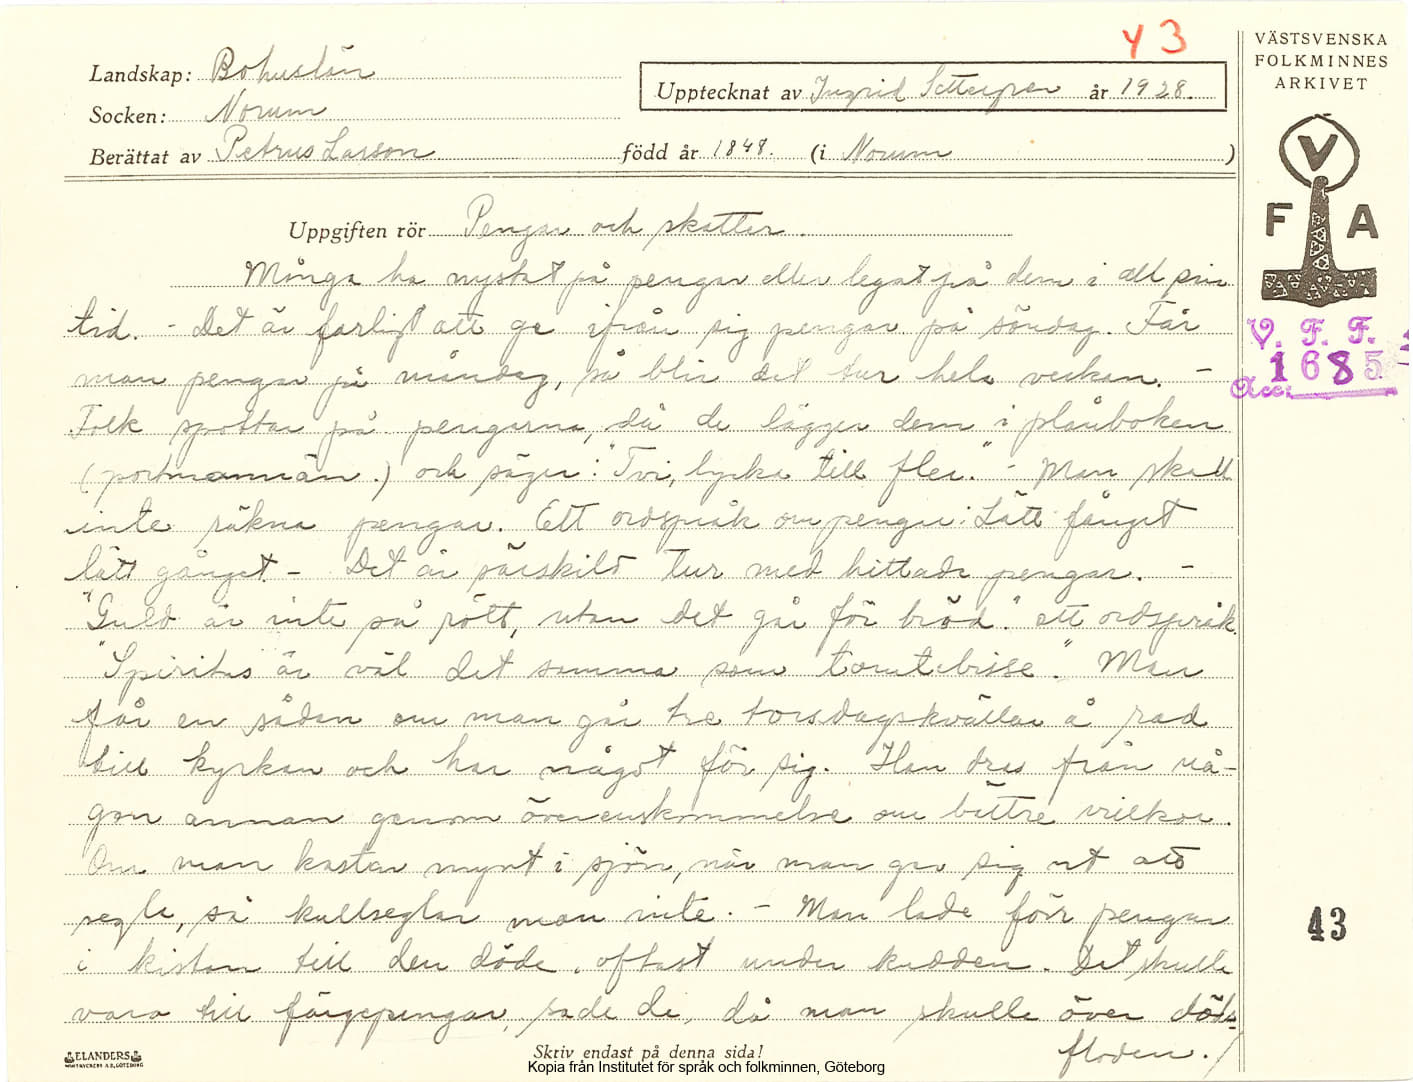 43
Landskap: Bohuslän
Socken: Norum
Berättat av Petrus Larson född år 1848. (i Norum )
Upptecknat av Ingrid Settergren år 1928.
VÄSTSVENSKA
FOLKMINNES
ARKIVET
V
F A
V. F. F.
1685
Acc:
Uppgiften rör Pengar och skatter.
Många ha nyskat på pengar eller legat på dem i all sin
tid. - Det är farligt att ge ifrån sig pengar på söndag. Får
man pengar på måndag, så blir det tur hela veckan. -
Folk spottar på pengarna, då de lägger dem i plånboken
(portmonnän.) och säger: "Tvi, lycka till fler." - Man skall
inte räkna pengar. Ett ordspråk om pengar: Lätt fånget
lätt gånget - Det är särskild tur med hittade pengar. -
"Guld är inte så rött, utan det går för bröd." ett ordspråk.
"Spiritus är väl det samma som tomtebisse." Man
får en sådan om man går tre torsdagskvällar å rad
till kyrkan och har något för sig. Han dras från nå-
gon annan genom överenskommelse om bättre villkor.
Om man kastar mynt i sjön, när man ger sig ut att
segla, så kullseglar man inte. - Man lade förr pengar
i kistan till den döde, oftast under kudden. Det skulle
vara till färgepengar, sade de, då man skulle över döds
floden.
43
ELANDERS
Skriv endast på denna sida!
Kopia från Institutet för språk och folkminnen, Göteborg